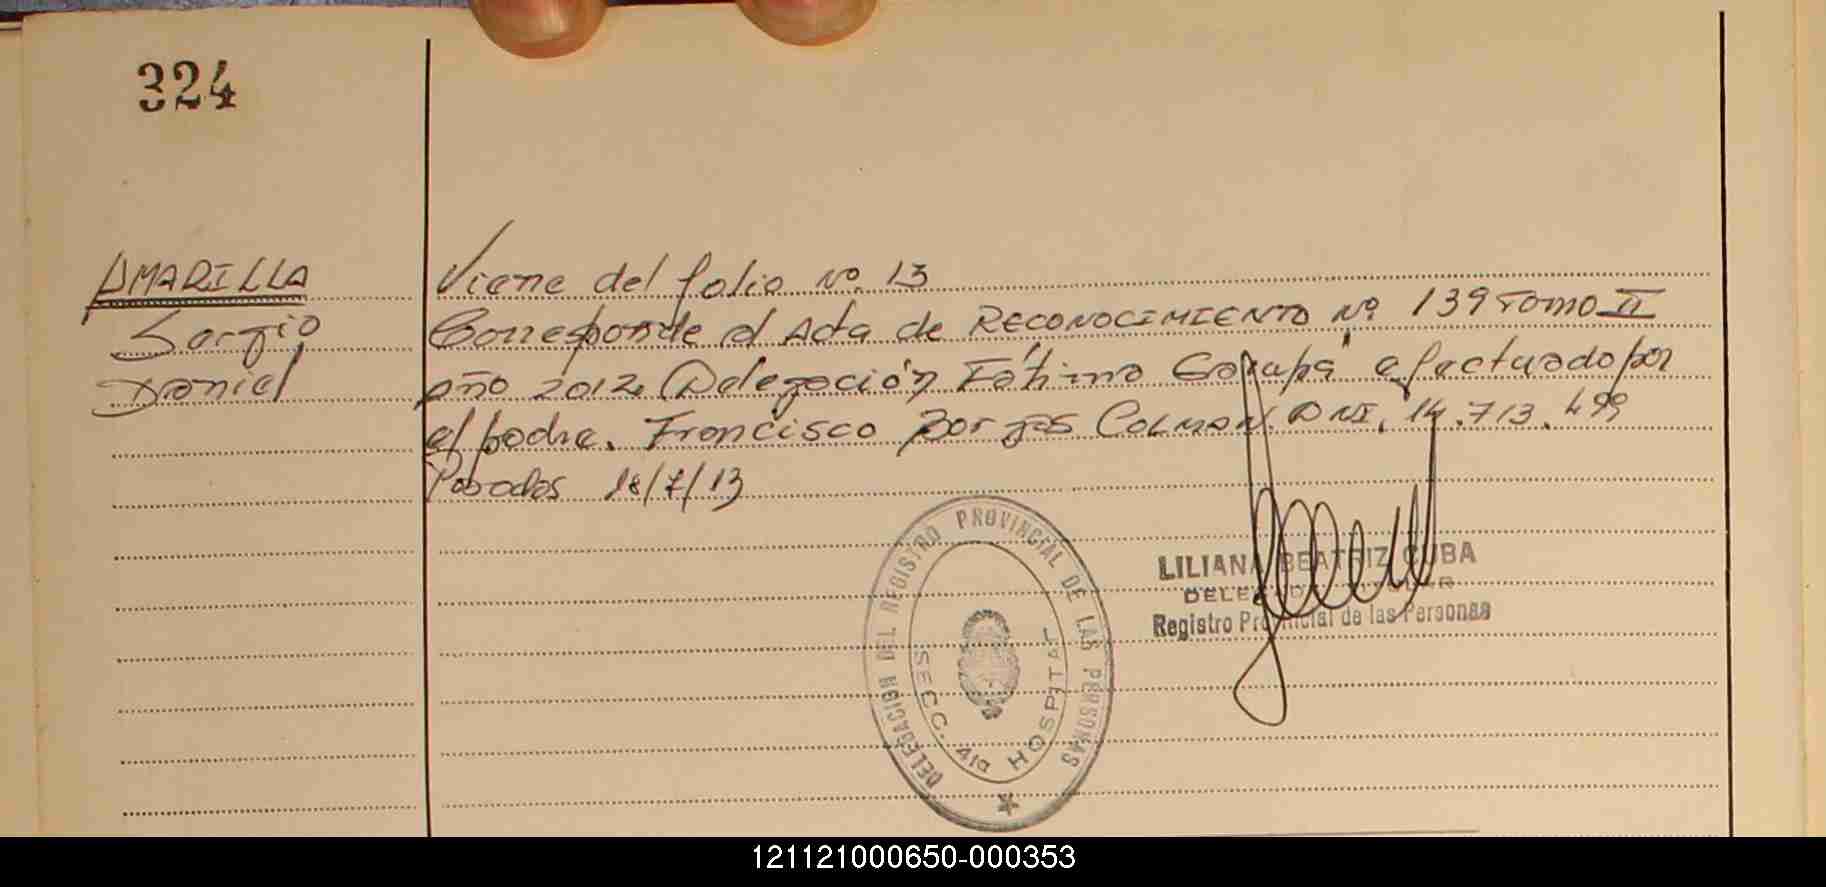 324
AMARILLA
Sergio
Daniel
Viene del folio Nº 13
Corresponde al Acta de RECONOCIMIENTO Nº 139 Tomo II
año 2012 (Delegación Fátima Garupá efectuado por
el padre. Francisco Borjas COLMAN. DNI. 14.713.499
Posadas 18/7/13
DELEGACION DEL REGISTRO PROVINCIAL DE LAS PERSONAS
SECC. 4ta HOSPITAL
LILIANA BEATRIZ CUBA
Registro Provincial de las Personas
121121000650-000353